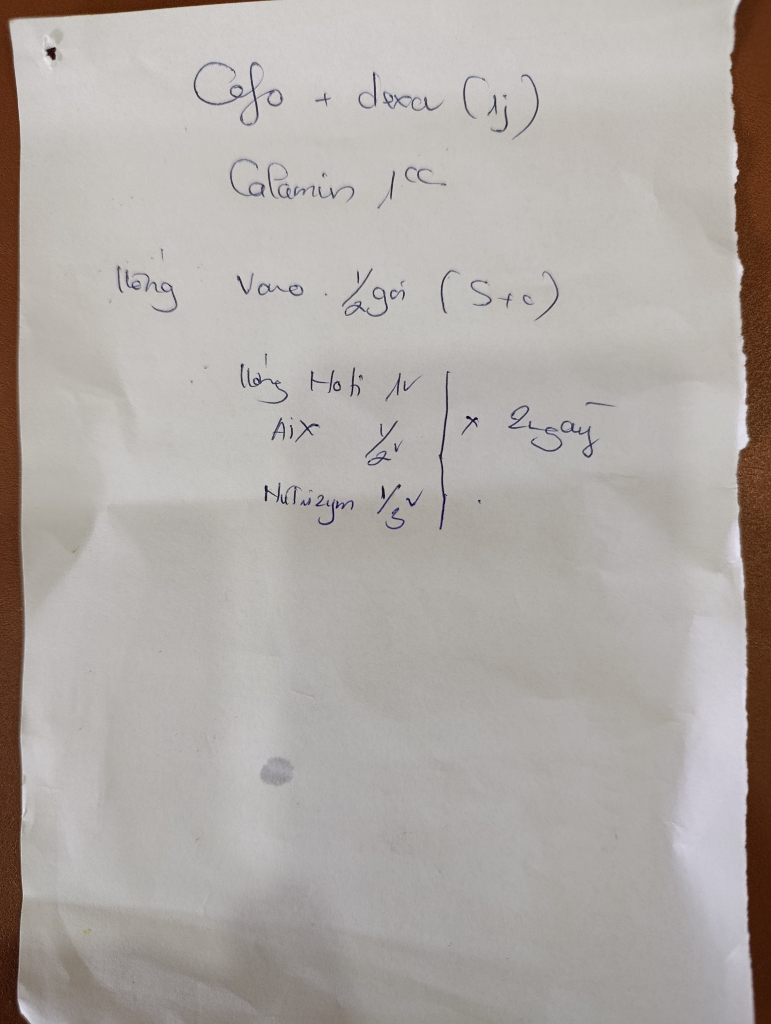 Cefo + dexa (1j)
Calamin 1cc
Uống Vavo. 1/2 gói (S+c)
Uống Hoti 1v
AiX 1/2v x 2 ngày
Nutrizym 1/3v